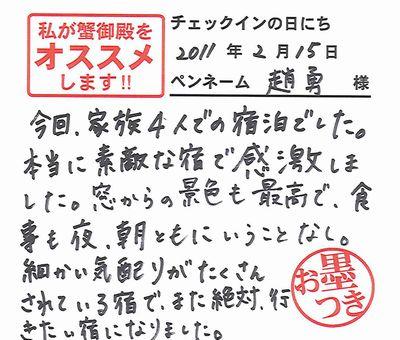 私が蟹御殿を
オススメ
します!!
チェックインの日にち
2011年2月15日
ペンネーム 趙勇 様
今回、家族4人での宿泊でした。
本当に素敵な宿で感激しま
した。窓からの景色も最高で、食
事も夜、朝ともにいうことなし。
細かい気配りがたくさん
されている宿で、また絶対、行
きたい宿になりました。
お墨
つき